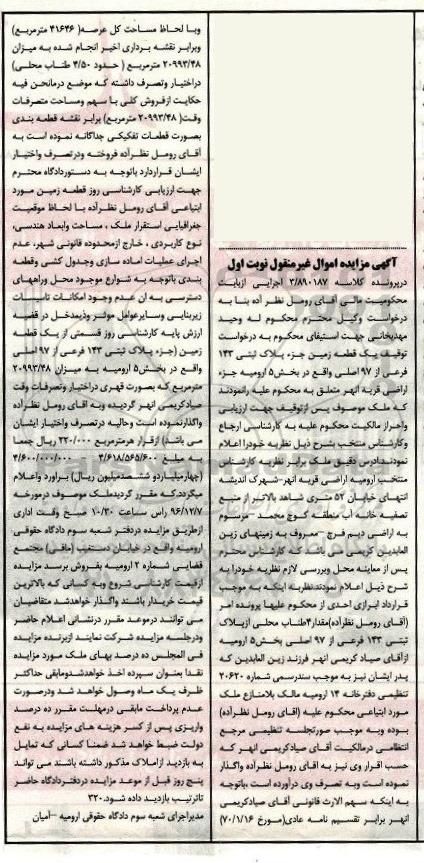 آگهی مزایده اموال غیرمنقول نوبت اول
درپرونده کلاسه ۳/۸۹۰۱۸۷ اجرایی ازبابت
محکومیت مالی آقای رومل نظر آده بنا به
درخواست وکیل محترم محکوم له وحید
مهدیخانی جهت استیفای محکوم به درخواست
توقیف یک قطعه زمین جزء پلاک ثبتی ۱۴۳
فرعی از ۹۷ اصلی واقع در بخش۵ ارومیه جزء
اراضی قریه انهر متعلق به محکوم علیه رانمودند
که ملک موصوف پس ازتوقیف جهت ارزیابی
واحراز مالکیت محکوم علیه به کارشناسی ارجاع
وکارشناس منتخب بشرح ذیل نظریه خودرا اعلام
نمودند؛آدرس دقیق ملک برابر نظریه کارشناس
منتخب ارومیه اراضی قریه انهر-شهرک اندیشه
انتهای خیابان ۵۲ متری شاهد بالاتر از منبع
تصفیه خانه آب منطقه گوچ محمد – مرسوم
به اراضی دیم فرج – معروف به زمینهای زین
العابدین کریمی می باشد که کارشناس محترم
پس از معاینه محل وبررسی لازم نظریه خودرا به
شرح ذیل اعلام نمودند؛نظریه اینکه به موجب
قرارداد ابرازی احدی از محکوم علیها پرونده امر
(آقای رومل نظرآده)مقدار۴طناب محلی ازپلاک
ثبتی ۱۴۳ فرعی از ۹۷ اصلی بخش۵ ارومیه
ازآقای صیاد کریمی انهر فرزند زین العابدین که
پدر ایشان نیز به موجب سندرسمی شماره ۲۰۶۲۰
تنظیمی دفترخانه ۱۴ ارومیه مالک بلامنازع ملک
مورد ابتیاعی محکوم علیه (اقای رومل نظرآده)
بوده وبه موجب صورتجلسه تنظیمی مرجع
انتظامی درمالکیت آقای صیادکریمی انهر که
حسب اقرار وی نیز به اقای رومل نظرآده واگذار
نموده است وبه تصرف وی درآورده است ،باتوجه
به اینکه سهم الارث قانونی آقای صیادکریمی
انهر برابر تقسیم نامه عادی(مورخ ۷۰/۱/۱۶)
وبا لحاظ مساحت کل عرصه( ۴۱۶۴۶ مترمربع)
وبرابر نقشه برداری اخیر انجام شده به میزان
۲۰۹۹۳/۴۸ مترمربع ( حدود ۴/۵۰ طناب محلی)
دراختیار وتصرف داشته که موضع درمانحن فیه
حکایت ازفروش کلی با سهم ومساحت متصرفات
وقت( ۲۰۹۹۳/۴۸ مترمربع) برابر نقشه قطعه بندی
بصورت قطعات تفکیکی جداگانه نموده است به
آقای رومل نظرآده فروخته ودرتصرف واختیار
ایشان قراردارد باتوجه به دستوردادگاه محترم
جهت ارزیابی کارشناسی روز قطعه زمین مورد
ابتیاعی آقای رومل نظرآده با لحاظ موقعیت
جغرافیایی استقرار ملک ، مساحت وابعاد هندسی،
نوع کاربردی ، خارج ازمحدوده قانونی شهر، عدم
اجرای عملیات اماده سازی وجدول کشی وقطعه
بندی باتوجه به شوارع موجود محل وراههای
دسترسی به ان عدم وجود امکانات تاسیسات
زیربنایی وسایرعوامل موثر وذیمدخل در قضیه
ارزش پایه کارشناسی روز قسمتی از یک قطعه
زمین (جزء پلاک ثبتی ۱۴۳ فرعی از ۹۷ اصلی
واقع در بخش۵ ارومیه به میزان ۲۰۹۹۳/۴۸
مترمربع که بصورت قهری دراختیار وتصرفات وقت
صیادکریمی انهر گردیده وبه اقای رومل نظرآده
واگذارنموده است وحالیه درتصرف واختیار ایشان
می باشد) ازقرار هرمترمربع ۲۲۰/۰۰۰ ریال جمعا
به مبلغ ۴/۶۱۸/۵۶۵/۶۰۰ ۴/۶۰۰/۰۰۰/۰۰۰
(چهارمیلیاردو ششصدمیلیون ریال) براورد واعلام
میگردد.که مقرر گردیدملک موصوف درمورخه
۹۶/۱۲/۷ راس ساعت ۱۰/۳۰ صبح وقت اداری
ازطریق مزایده دردفتر شعبه سوم دادگاه حقوقی
ارومیه واقع در خیابان دستغیب (مافی) مجتمع
قضایی شماره ۲ ارومیه بفروش برسد مزایده
ازقیمت کارشناسی شروع وبه کسانی که بالاترین
قیمت خریدار باشند واگذار خواهدشد متقاضیان
می توانند درموعد مقرر درنشانی اعلام حاضر
ودرجلسه مزایده شرکت نمایند ازبرنده مزایده
فی المجلس ده درصد بهای ملک مورد مزایده
نقدا بعنوان سپرده اخذ خواهدشدومابقی حداکثر
ظرف یک ماه وصول خواهد شد ودرصورت
عدم پرداخت مابقی درمهلت مقرر ده درصد
واریزی پس از کسر هزینه های مزایده به نفع
دولت ضبط خواهد شد ضمنا کسانی که تمایل
به بازدید ازاملاک مذکور داشته باشند می تواند
پنج روز قبل از موعد مزایده دردفتردادگاه حاضر
تاترتیب بازدید داده شود.۳۲۰
مدیراجرای شعبه سوم دادگاه حقوقی ارومیه –آمیان